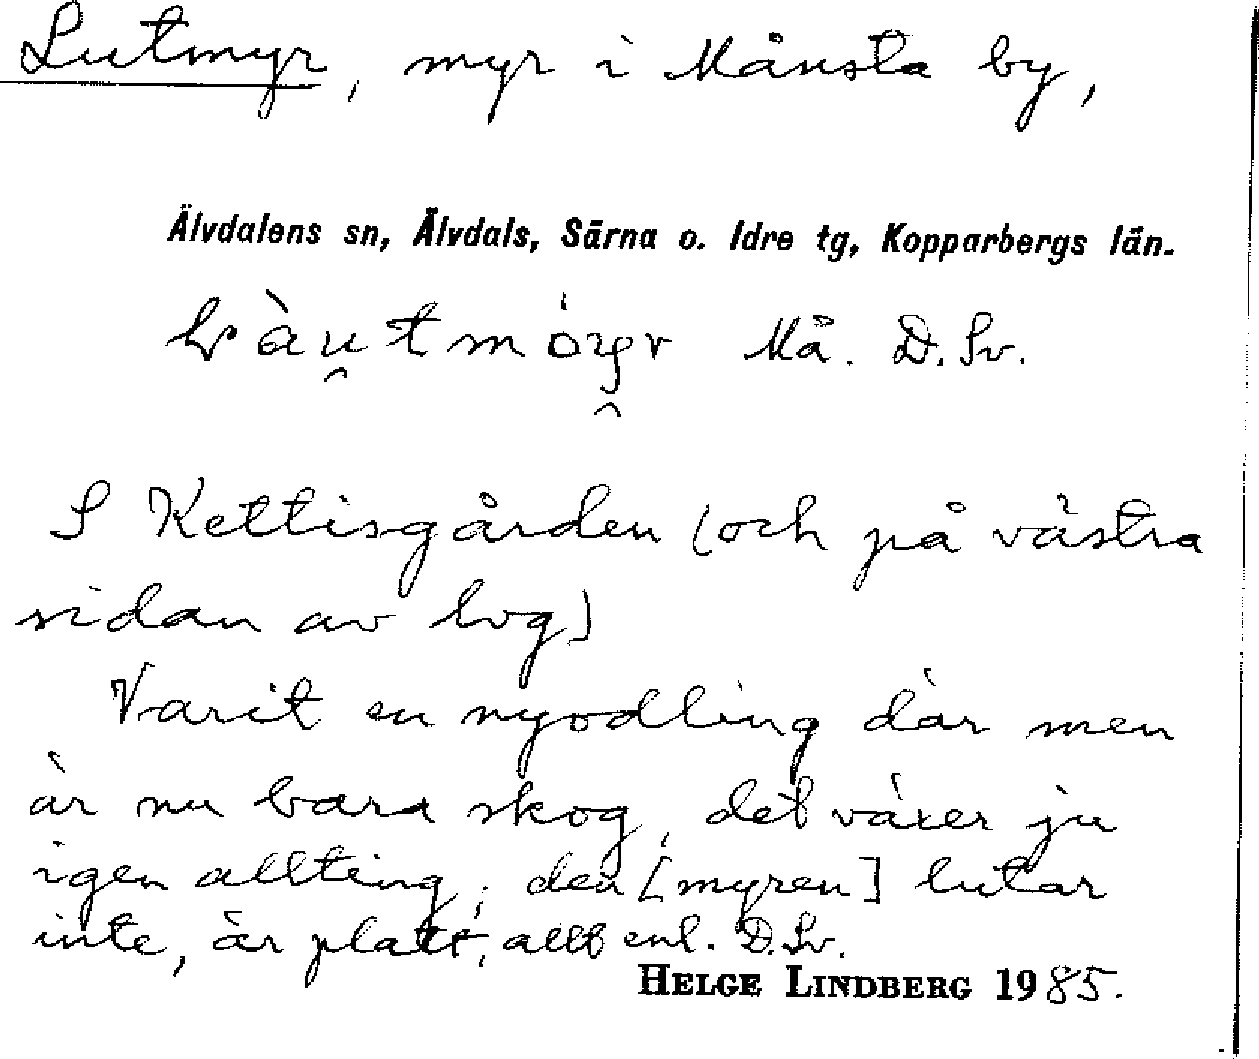 Lutmyr, myr i Månsta by,
Älvdalens sn, Älvdals, Särna o. Idre tg, Kopparbergs län.
Må. D. Sv.
S Kettisgården (och på västra
sidan av lvg)
Varit en nyodling där men
är nu bara skog, det växer ju
igen allting; den [myren] lutar
inte, är platt; allt enl. D. Sv.
HELGE LINDBERG 1985.